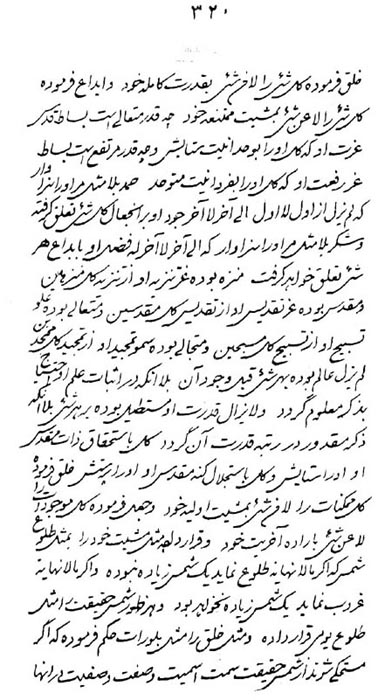 ٣٢٠
خلق فرموده كلشئ را لا من شئ بقدرت كامله خود و ابداع فرموده
كلشئ را لا عن شئ بمشيت ممتنعه خود چه قدر متعالى است بساط قدس
عزت او كه كل او را بوحدانيت ستايش و چه قدر مرتفع است بساط
عز رفعت او كه كل او را بفردانيت متوحد حمد بلا مثل مر او را سزاوار
كه لم يزل از اول لا اول الى آخر لا آخر جود او بر انجعال كلشئ تعلق گرفته
و شكر بلا مثل مر او را سزاوار كه الى آخر لا آخر له فضل او بابداع هر
شئ تعلق خواهد گرفت منزه بوده عز تنزيه او از تنزيه كل منزهين
و مقدس بوده عز تقديس او از تقديس كل مقدسين و متعالى بوده علو
تسبيح او از تسبيح كل مسبحين و متجالى بوده سمو تمجيد او از تمجيد كل ممجدين
لم يزل عالم بوده بهر شئ قبل وجود آن بلا آنكه در اثبات علم او احتياج
بذكر معلوم گردد و لا يزال قدرت او مستطيل بوده بر هر شئ بلا آنكه
ذكر مقدور در رتبه قدرت آن گردد كل باستحقاق ذات مقدس
او او را ستايش و كل باستجلال كنه مقدس او او را پرستش خلق فرموده
كل ممكنات را لا من شئ بمشيت اوليه خود و جعل فرموده كل موجودات را
لا عن شئ باراده آخريت خود و قرار داده مثل مشيت خود را بمثل طلوع
شمس كه اگر بما لا نهايه طلوع نمايد يك شمس زياده نبوده و اگر بما لا نهايه
غروب نمايد يك شمس زياده نخواهد بود و هر ظهور شمس حقيقت را مثل
طلوع يومى قرار داده و مثل خلق را مثل بلورات حكم فرموده كه اگر
متجلى شوند از شمس حقيقت سمت اسميت و صفت وصفيت بر آنها